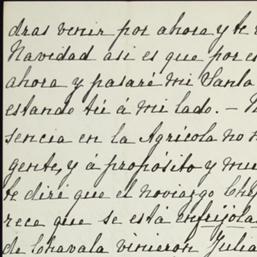 dras venir por ahora y te
Navidad asi es que por es
ahora y pasaré mi Santo
estando tú á mi lado. –
sencia en la Agrícola no
gente, y á propósito y mu
te diré que el noviazgo
rece que se está enfrijola
de Chavala vinieron Julia